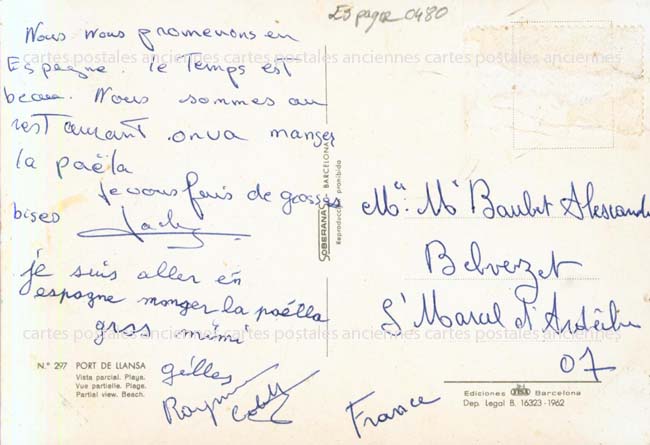 Espagne 0480
Nous nous promenons en
Espagne. le Temps est
beau. Nous sommes au
restaurant on va manger
la paëla
Je vous fais de grosses
bises
je suis aller en
espagne manger la paëlla
gros mimi
gilles
Raymond
SOBERANAS - BARCELONA
Reproducción prohibida
Mr Baubet Alexandre
Belvezet
St Marcel d'Ardèche
07
France
N.º 297 PORT DE LLANSA
Vista parcial. Playa.
Vue partielle. Plage.
Partial view. Beach.
Ediciones Barcelona
Dep. Legal B. 16323-1962
cartes postales anciennes cartes postales anciennes cartes postales anciennes
cartes postales anciennes cartes postales anciennes cartes postales anciennes
cartes postales anciennes cartes postales anciennes cartes postales anciennes